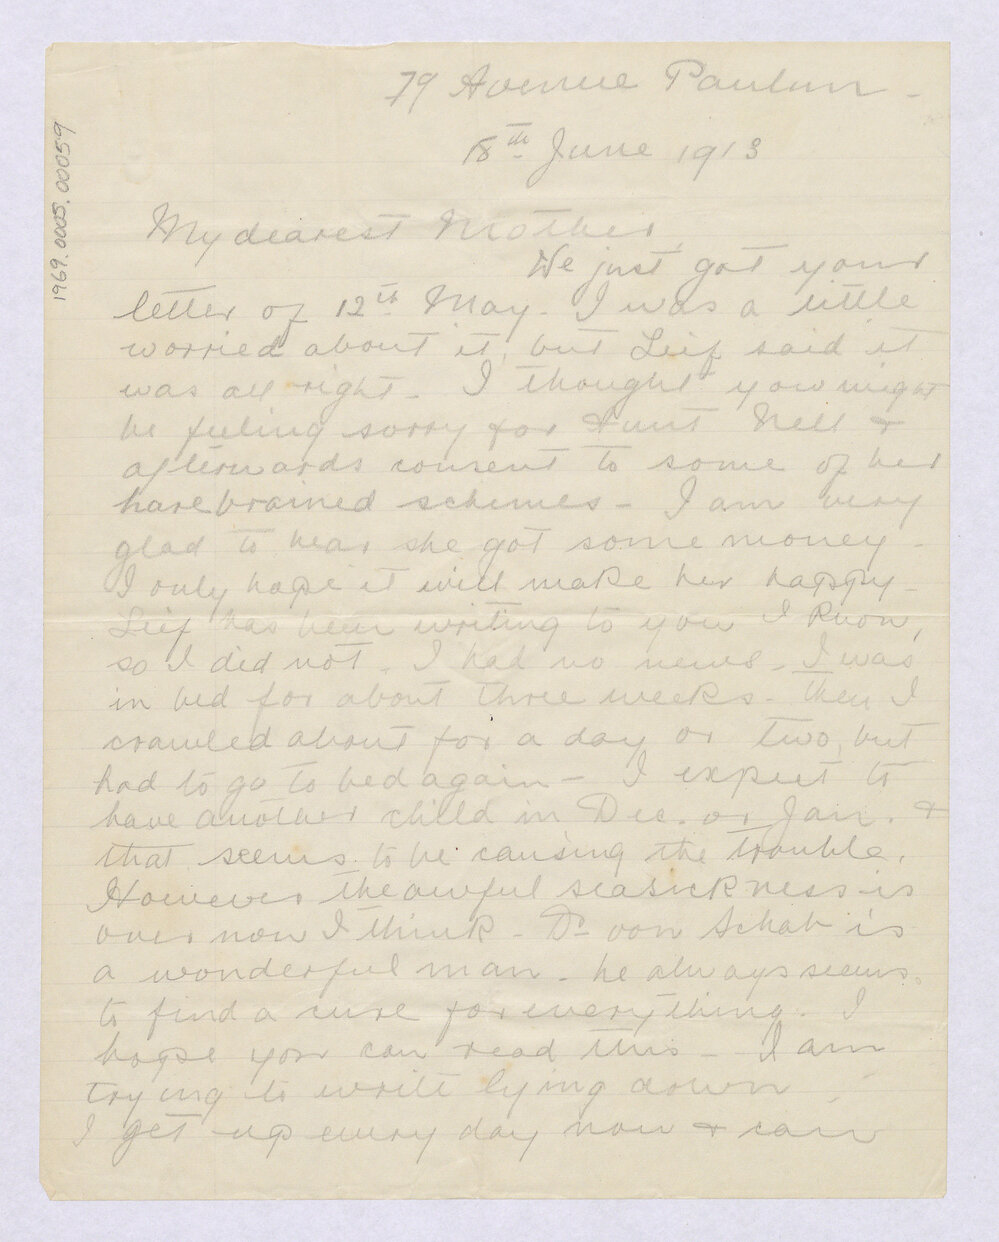 79 Avenue Paulun -
18th June 1913
1969.0005.00059
My dearest Mother,
We just got your
letter of 12th May. I was a little
worried about it, but Leif said it
was all right - I thought you might
be feeling sorry for Aunt Nell &
afterwards consent to some of her
harebrained schemes - I am very
glad to hear she got some money -
I only hope it will make her happy -
Leif has been writing to you I know,
so I did not. I had no news - I was
in bed for about three weeks - then I
crawled about for a day or two, but
had to go to bed again - I expect to
have another child in Dec. or Jan. &
that seems to be causing the trouble.
However the awful seasickness is
over now I think - Dr von Schab is
a wonderful man - he always seems
to find a cure for everything. I
hope you can read this - I am
trying to write lying down -
I get up every day now & can